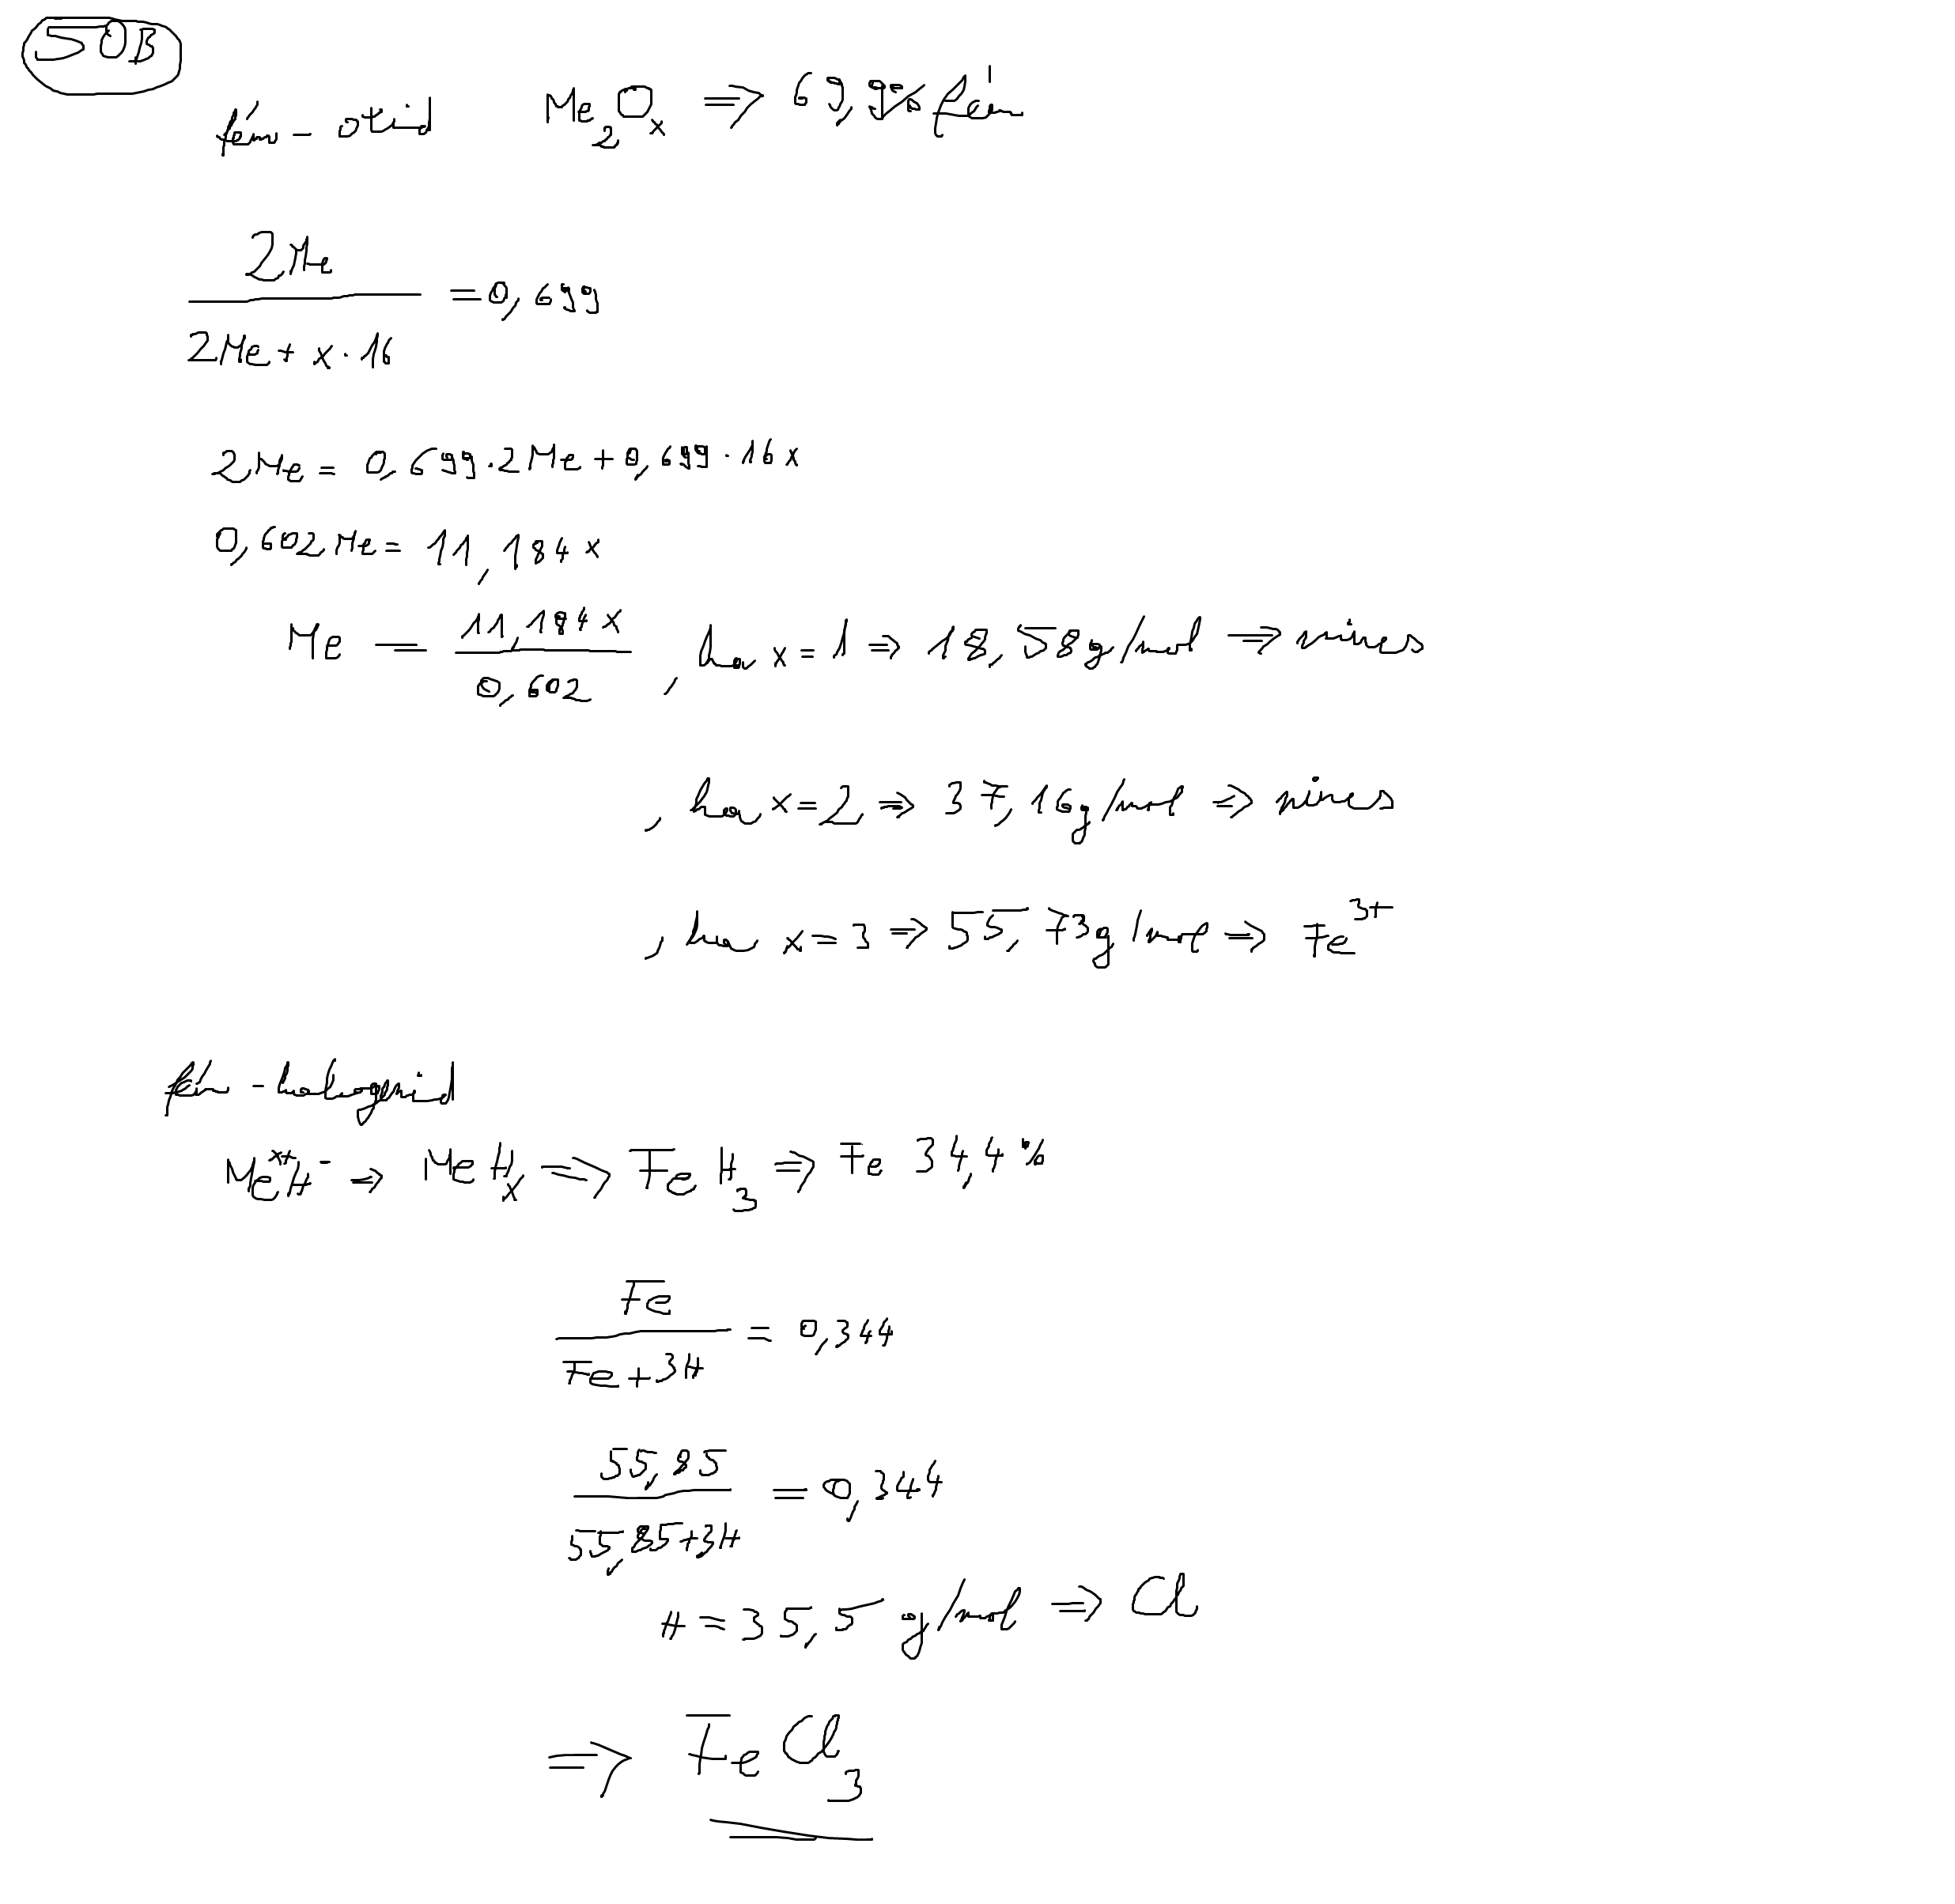 50B
fém - oxid Me₂Oₓ ⇒ 69,9% fém
2Me
2Me + x·16
= 0,699
2Me = 0,699·2Me + 0,699·16x
0,602Me = 11,184x
Me = 11,184x / 0,602 , ha x = 1 ⇒ 18,58g/mol ⇒ nincs
, ha x = 2 ⇒ 37,16g/mol ⇒ nincs
, ha x = 3 ⇒ 55,73g/mol ⇒ Fe³⁺
fém - halogenid
Meˣ⁺H⁻ ⇒ MeHₓ ⇒ FeH₃ ⇒ Fe 34,4%
Fe
Fe + 3H
= 0,344
55,85
55,85+3H
= 0,344
H = 35,5 g/mol ⇒ Cl
⇒ FeCl₃